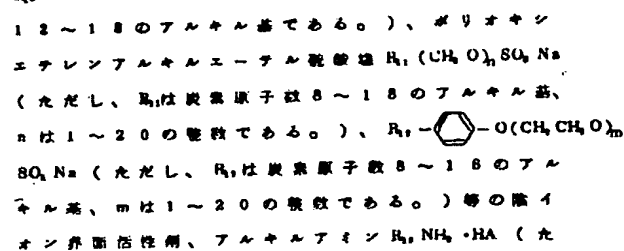 12～18のアルキル基である。)、ポリオキシ
エチレンアルキルエーテル硫酸塩 R₁₁(CH₂O)ₙSO₃Na
(ただし、R₁₁は炭素原子数8～18のアルキル基、
nは1～20の整数である。)、R₁₂-O(CH₂CH₂O)m
SO₃Na(ただし、R₁₂は炭素原子数8～16のアル
キル基、mは1～20の整数である。)等の陰イ
オン界面活性剤、アルキルアミン NH₂・HA(た